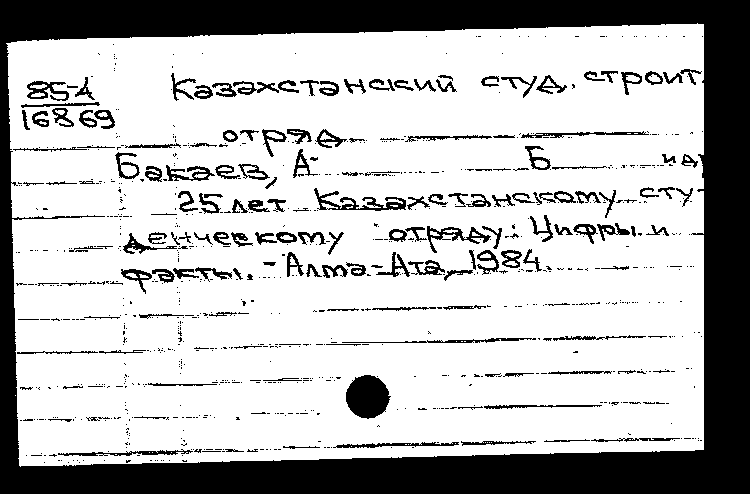 85-4
16869
Казахстанский студ. строит.
отряд
Бакаев, А. Б идр
25 лет Казахстанскому сту-
денческому отряду: Цифры и
факты. - Алма-Ата, 1984.